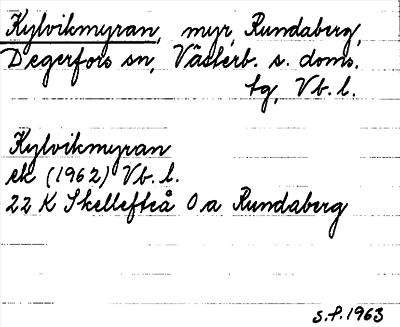 Kylvikmyran, myr, Rundaberg,
Degerfors sn, Västerb. s. doms.
tg, Vb. l.
Kylvikmyran
ek (1962) Vb. l.
22 K Skellefteå 0a Rundaberg
s.f. 1963